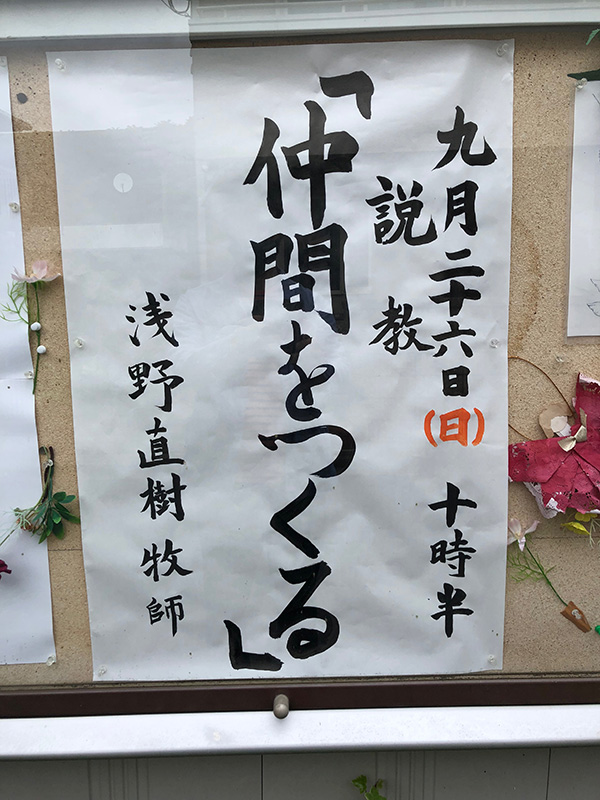 九月二十六日(日) 十時半
説教
「仲間をつくる」
浅野直樹 牧師